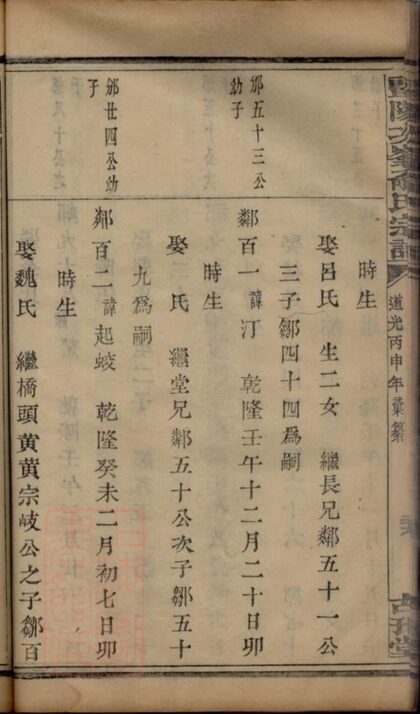 暨陽次峯俞氏宗譜
道光丙申年彙纂
時生
娶呂氏 生二女 繼長兄鄰五十一公
三子鄒四十四爲嗣
五十三公
幼子
鄰百一 諱汀 乾隆壬午十二月二十日卯
時生
娶 氏 繼堂兄鄰五十公次子鄒五十
九爲嗣
廿四公幼
子
鄰百二 諱起 乾隆癸未二月初七日卯
時生
娶魏氏 繼橋頭黃黃宗岐公之子鄒百